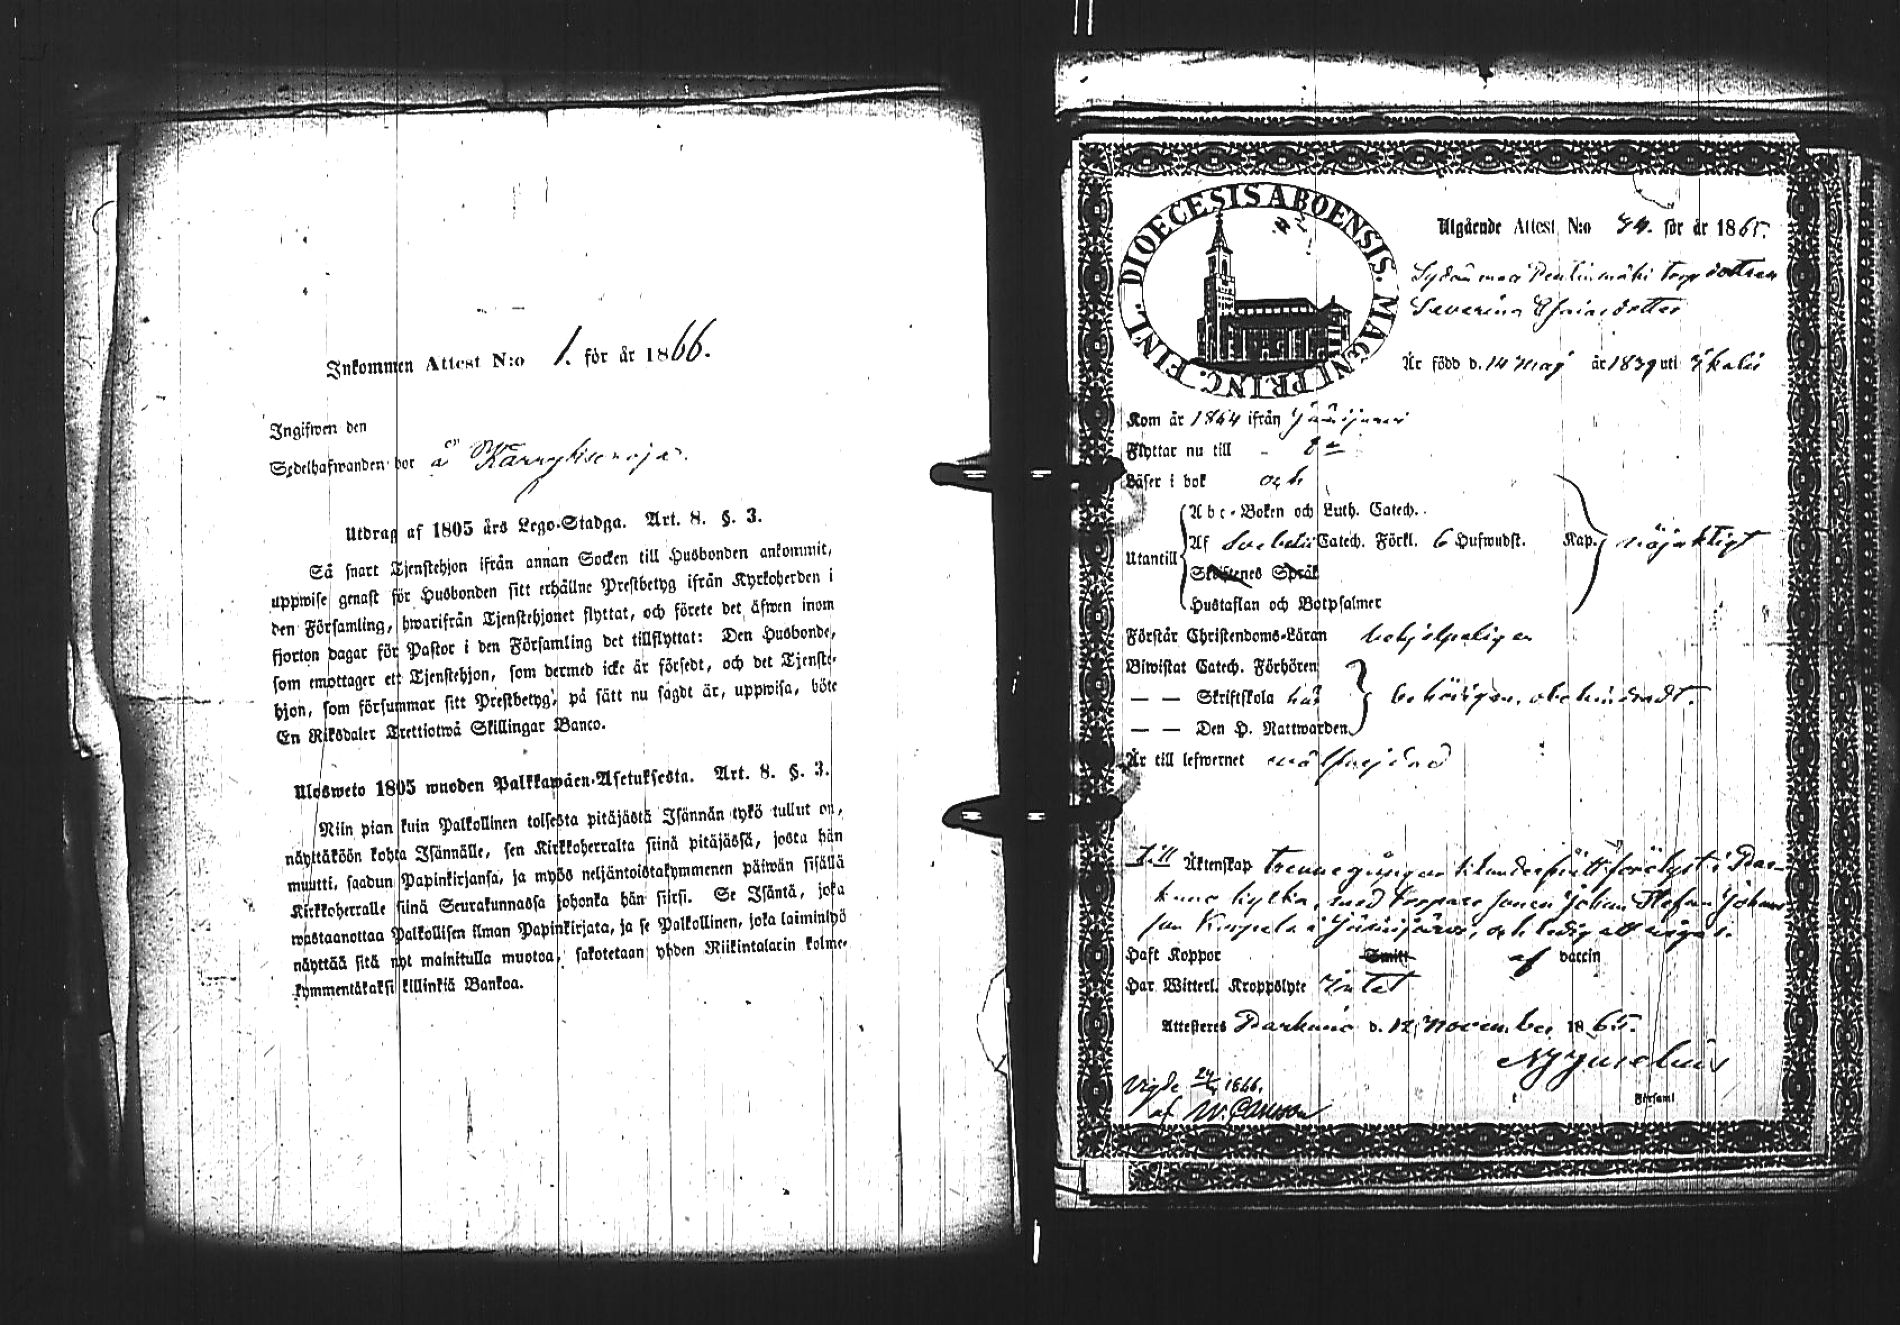 Inkommen Attest N:o 1. för år 1866.
Ingifwen den
Sedelhafwanden bor å
Utdrag af 1805 års Lego-Stadga. Art. 8. §. 3.
Så snart Tjenstehjon ifrån annan Socken till Husbonden ankommit,
uppwise genast för Husbonden sitt erhållne Prestbetyg ifrån Kyrkoherden i
den Församling, hwarifrån Tjenstehjonet flyttat, och förete det äfwen inom
fjorton dagar för Pastor i den Församling det tillflyttat: Den Husbonde,
som emottager ett Tjenstehjon, som dermed icke är försedt, och det Tjenste-
hjon, som försummar sitt Prestbetyg, på sätt nu sagdt är, uppwisa, böte
En Riksdaler Trettiotwå Skillingar Banco.
Ulosweto 1805 wuoden Palkkawäen-Asetuksesta. Art. 8. §. 3.
Niin pian kuin Palkollinen toisesta pitäjästä Isännän tykö tullut on,
näyttäköön kohta Isännälle, sen Kirkkoherralta siinä pitäjässä, josta hän
muutti, saadun Papinkirjansa, ja myös neljäntoistakymmenen päiwän sisällä
Kirkkoherralle siinä Seurakunnassa johonka hän siirsi. Se Isäntä, joka
wastaanottaa Palkollisen ilman Papinkirjata, ja se Palkollinen, joka laiminlyö
näyttää sitä nyt mainitulla muotoa, sakotetaan yhden Riikintalarin kolme-
kymmentäkaksi killinkiä Bankoa.
DIOECESIS ABOENSIS. MAGNI PRINC. FINL.
Utgående Attest N:o 74. för år 1865.
torpdottren
Severina Esaiasdotter
Är född d. 14 maj år 1839 uti Ikalis
Kom år 1864 ifrån Jämijärvi
Flyttar nu till
Läser i bok och
Abc-Boken och Luth. Catech.
Utantill Af Svebelii Catech. Förkl. 6 Hufwudst. Kap. nöjaktigt
Skriftenes Språk
Hustaflan och Botpsalmer
Förstår Christendoms-Läran behjelpeligen
Biwistat Catech. Förhören
— — Skriftskola här behörigen, obehindradt.
— — Den H. Nattwarden
Är till lefwernet wälfrejdad
Till Äktenskap trenne gånger förelyst i Par-
kano kyrka, med torpare sonen Johan Stefan Johans-
son Korpela i Jämijärvi, och ledig att wigas.
Haft Koppor Smitt af vaccin
Har Witterl. Kroppslyte Intet
Attesteres Parkano d. 12 November 1865.
Vigde 1866.
af W. Carlsson
i Församl